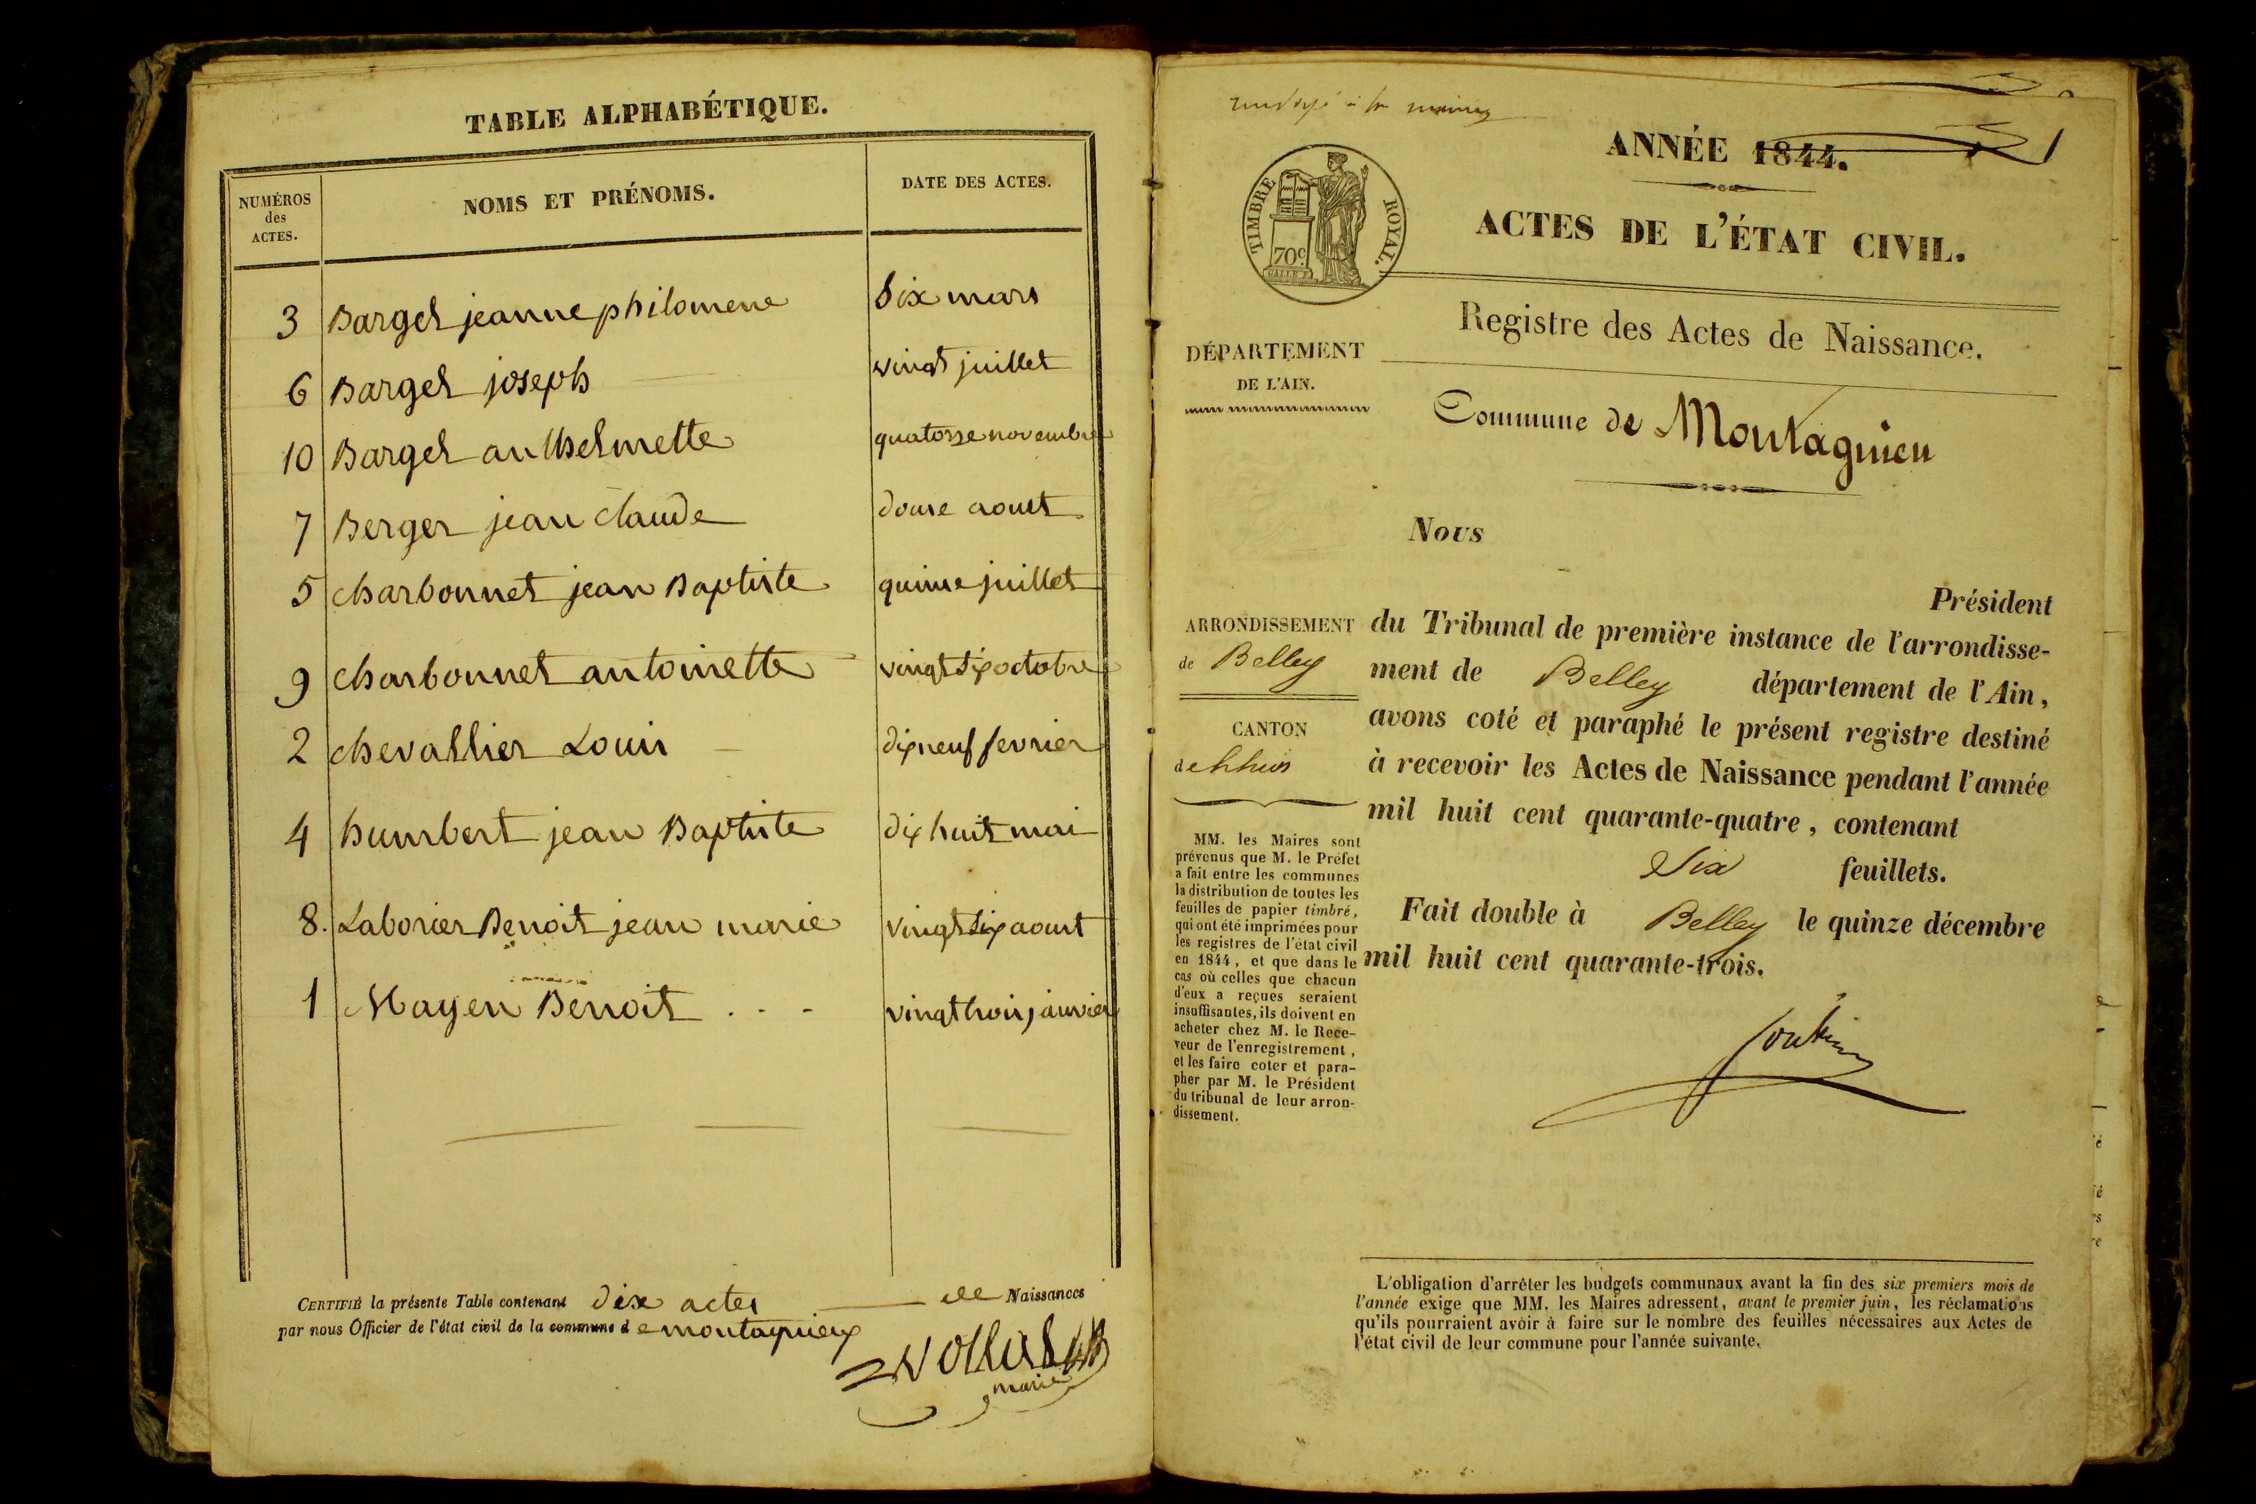 TABLE ALPHABÉTIQUE.
NUMÉROS des ACTES. NOMS ET PRÉNOMS. DATE DES ACTES.
3 Barget jeanne philomene Six mars
6 Barget joseph vingt juillet
10 Barget anthelmette quatorze novembre
7 Berger jean claude douse aoust
5 charbonnet jean Baptiste quinse juillet
9 charbonnet antoinette vingt six octobre
2 chevallier Louis dix neuf fevrier
4 humbert jean Baptiste dix huit mai
8. Laborier Benoit jean marie vingt six aoust
1 Mayen Benoit vingt trois janvier
CERTIFIÉ la présente Table contenant dix actes de Naissances
par nous Officier de l'état civil de la commune de montagnieux
maire
à la mairie
ANNÉE 1844.
TIMBRE ROYAL.
70c
ACTES DE L'ÉTAT CIVIL.
Registre des Actes de Naissance.
DÉPARTEMENT
DE L'AIN.
Commune de Montagnieu
Nous
Président
ARRONDISSEMENT
de Belley
CANTON
de Lhuis
du Tribunal de première instance de l'arrondisse-
ment de Belley département de l'Ain,
avons coté et paraphé le présent registre destiné
à recevoir les Actes de Naissance pendant l'année
mil huit cent quarante-quatre, contenant
Six feuillets.
Fait double à Belley le quinze décembre
mil huit cent quarante-trois.
MM. les Maires sont
prévenus que M. le Préfet
a fait entre les communes
la distribution de toutes les
feuilles de papier timbré,
qui ont été imprimées pour
les registres de l'état civil
en 1844, et que dans le
cas où celles que chacun
d'eux a reçues seraient
insuffisantes, ils doivent en
acheter chez M. le Rece-
veur de l'enregistrement,
et les faire coter et para-
pher par M. le Président
du tribunal de leur arron-
dissement.
L'obligation d'arrêter les budgets communaux avant la fin des six premiers mois de
l'année exige que MM. les Maires adressent, avant le premier juin, les réclamations
qu'ils pourraient avoir à faire sur le nombre des feuilles nécessaires aux Actes de
l'état civil de leur commune pour l'année suivante.